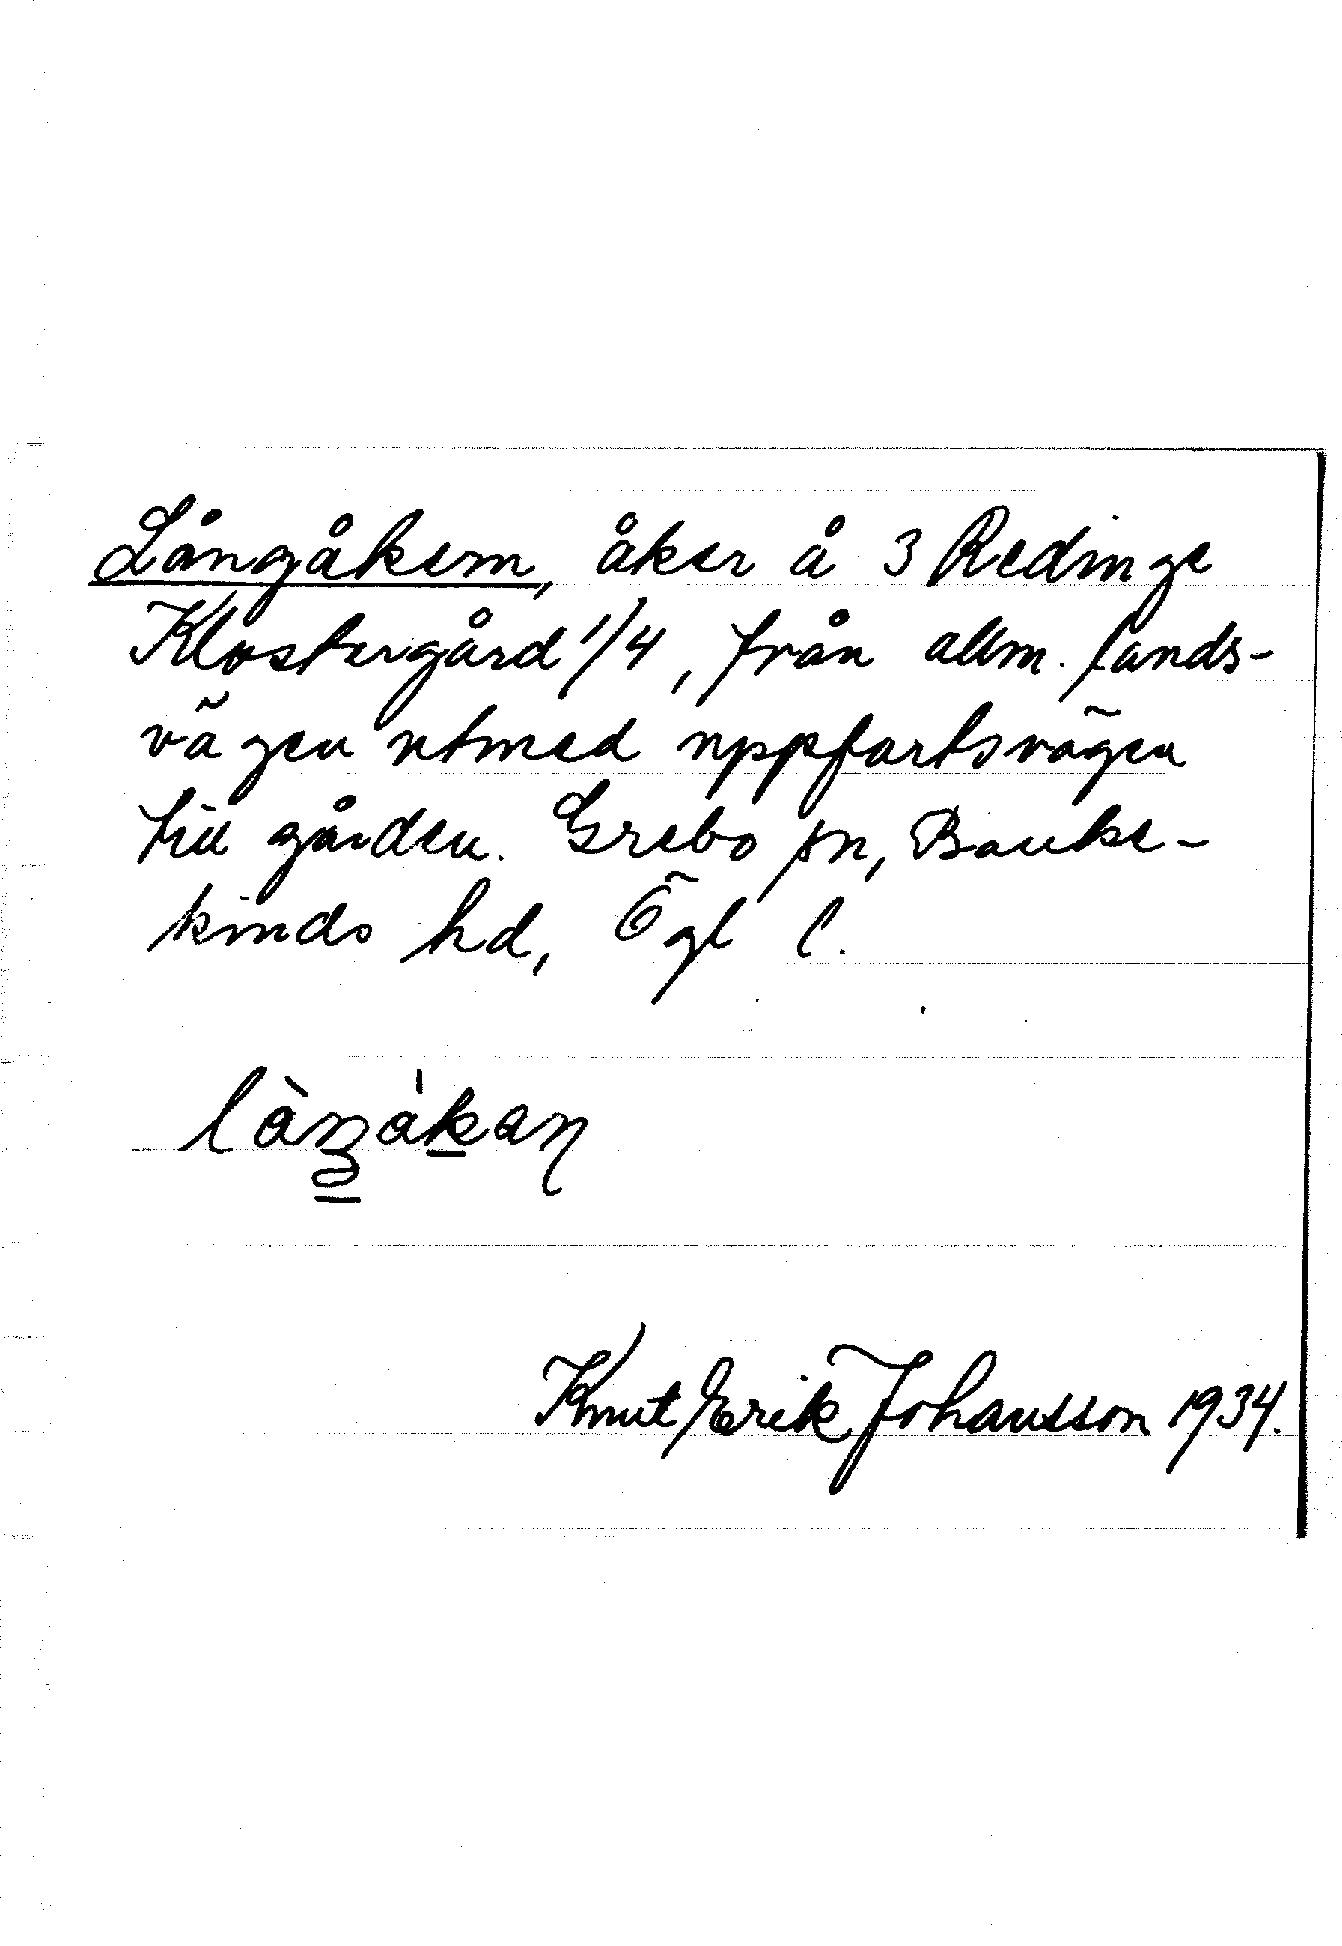 Långåkern, åker å 3 Redinge
Klostergård 1/4, från allm. lands-
vägen utmed uppfartsvägen
till gården. Grebo sn, Banke-
kinds hd, Ögl l.
Knut Erik Johansson 1934.